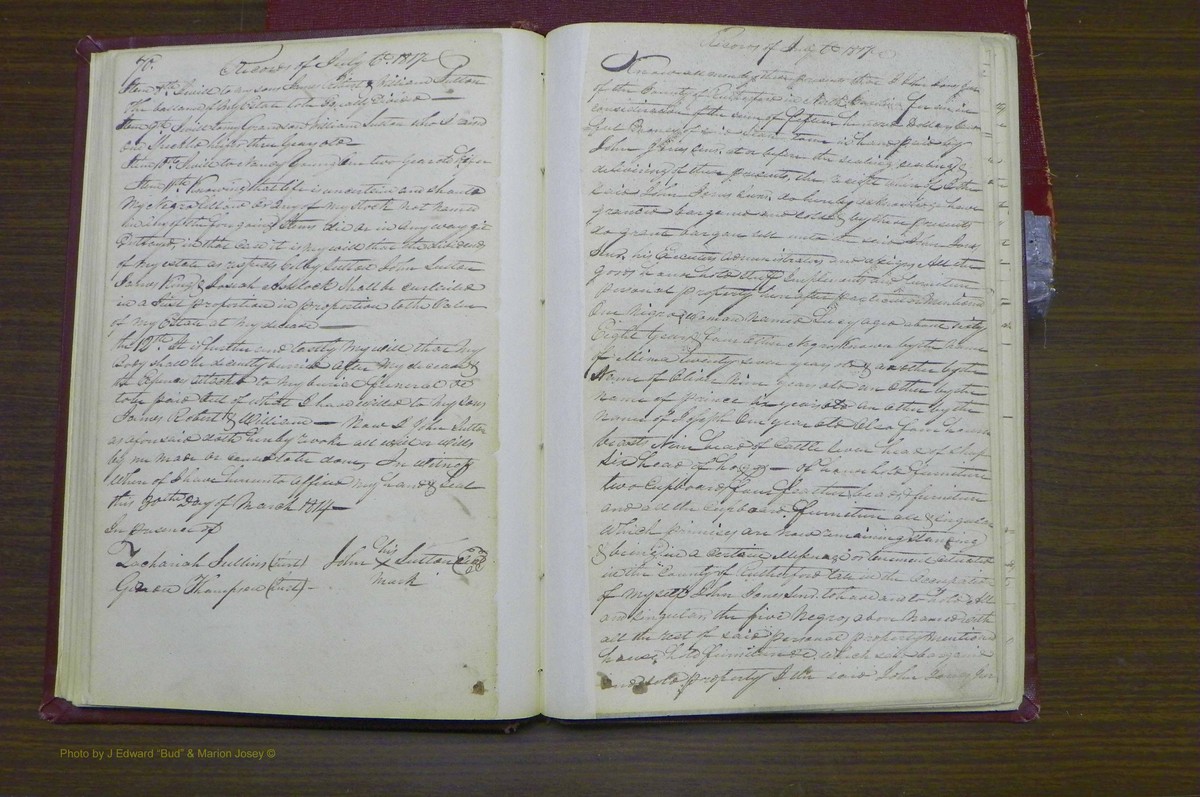 70.
Records of July tm 1817
Item 8th I will to my son James Robert & William Sutton
the ballance of my Estate to be Equally Divided —
Item 9th I will to my Grandson William Sutton who I raised
one three years old —
Item 10th I will to Nancy one two year old
Item 11th Knowing that life is uncertain and should
My Negro William or any of my Stock not named
in any of the foregoing Items die or in any way git
Distroyed in that case it is my will then the dividend
of my estate as respects Sutton John Sutton
James King & Josiah Blalock Shall be curtailed
in a Just proportion in proportion to the value
of my Estate at my decease —
the 12th It is further and lastly my will that my
Body Shall be decently buried after my decease &
the Expenses attached to my burial funeral &c
to be paid out of what I have willed to my sons
James Robert & William — Now I John Sutton
as aforesaid doth hereby revoke all will or wills
by me made or caused to be done, In witness
where of I have hereunto affixed my hand & seal
this 30th Day of March 1814 —
In presence of
Zachariah Sullins (Jurt) John his X mark Sutton Seal
Green Thompson (Jurt) —
Records of July tm 1817
Know all men by these presents that I John Jones Junr
of the County of Rutherford in North Carolina for and in
consideration of the sum of hundred Dollars
to me in hand paid by
John Jones Senr. at or before the sealing &
delivering of these presents the receipt whereof I the
said John Jones Junr. do hereby acknowledge have
granted bargained and sold & by these presents
do grant bargain sell unto the said John Jones
Senr. his Executors administrators and assigns All the
goods household Implements and furniture
personal property here after
One Negro Woman named Lucy aged about sixty
Eight years & another by the name
of Mima twenty seven years old & another by the
Name of Nine years old an other by the
name of prince Six years old an other by the
name of Joseph One year old Also four horse
beasts Nine head of Cattle head of sheep
Six head of hoggs — of household furniture
two Cupboards four feather beds & furniture
and all the cupboard furniture all & singular
Which premises are now remaining standing
& being in a certain or tenement situated
in the County of Rutherford late in the occupation
of myself John Jones Junr to have and to hold All
and Singular the five Negros above Named with
all the rest of said personal property mentioned
house hold furniture &c which said bargained
and sold property I the said John Jones Junr
Photo by J Edward “Bud” & Marion Josey ©